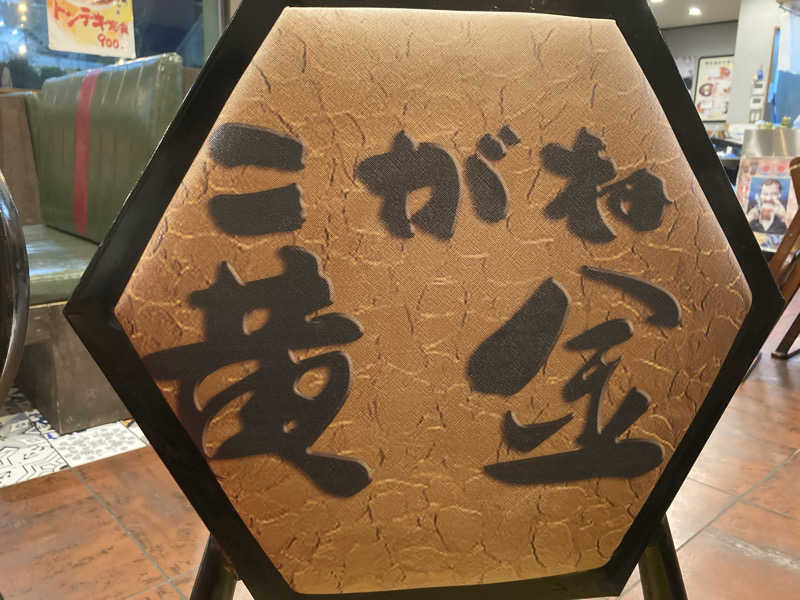 トンテキ定食
900
こがね
黄金